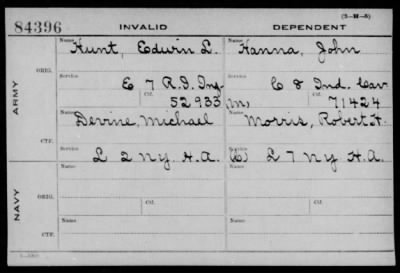 (3-M-5)
84396 INVALID DEPENDENT
ARMY
ORIG.
Name Hunt, Edwin L. Name Hanna, John
Service E 7 R.I. Inf Service C 8 Ind. Cav
Ctf. 52933 (M) Ctf. 71424
CTF.
Name Devine, Michael Name Morris, Robert H.
L 2 N.Y. H.A. L 7 N.Y. H.A.
NAVY
ORIG.
Name Name
Service Ctf. Service Ctf.
CTF.
Name Name